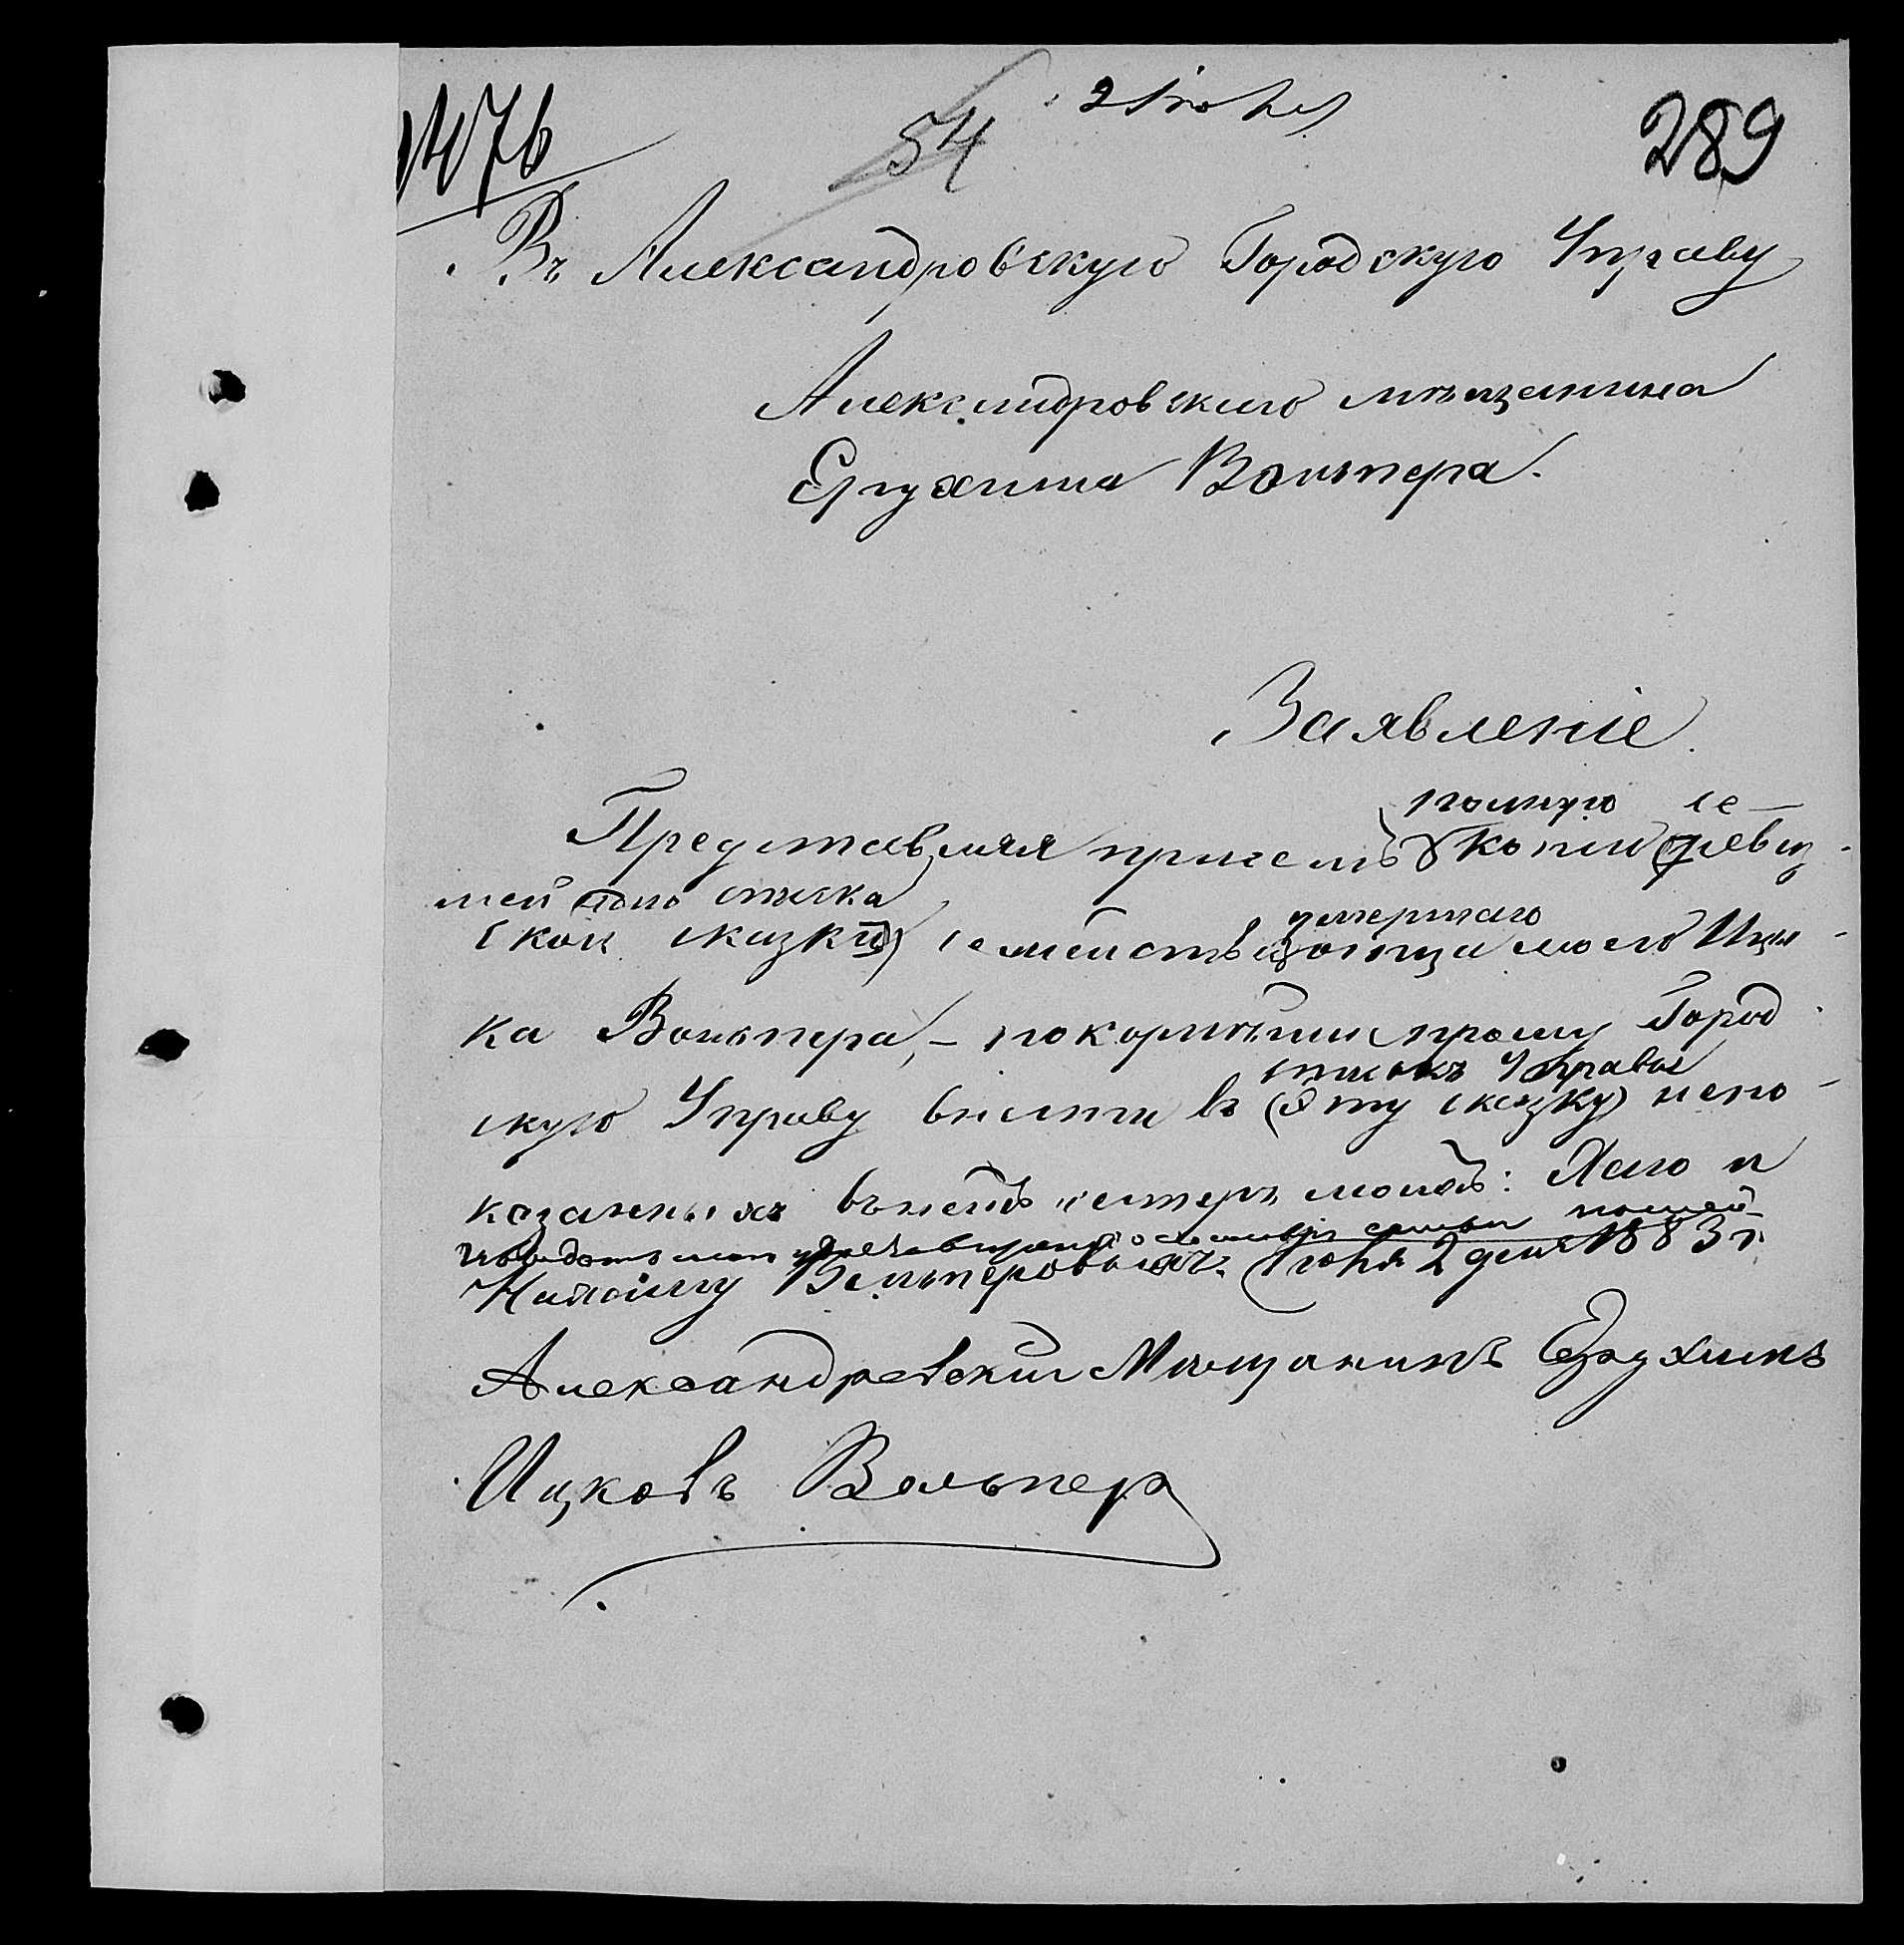 1076
54
2 Іюня
289
Въ Александровскую Городскую Управу
Александровскаго мѣщанина
Ерухима Вольпера.
Заявленіе.
полную се-
Представляя присемъ копію (ревиз-
мейнаго списка
ской сказки) семейства отца моего Иц-
умершаго
ка Вольпера, - покорнѣйше прошу Город
скую Управу внести въ (эту сказку) непо-
списокъ Управы
казанныхъ въ ней сестеръ моихъ: Хаю и
Вольперовыхъ. Іюня 2 дня 1883 г.
Александровский Мещанинъ Ерухимъ
Ицковъ Вольпер